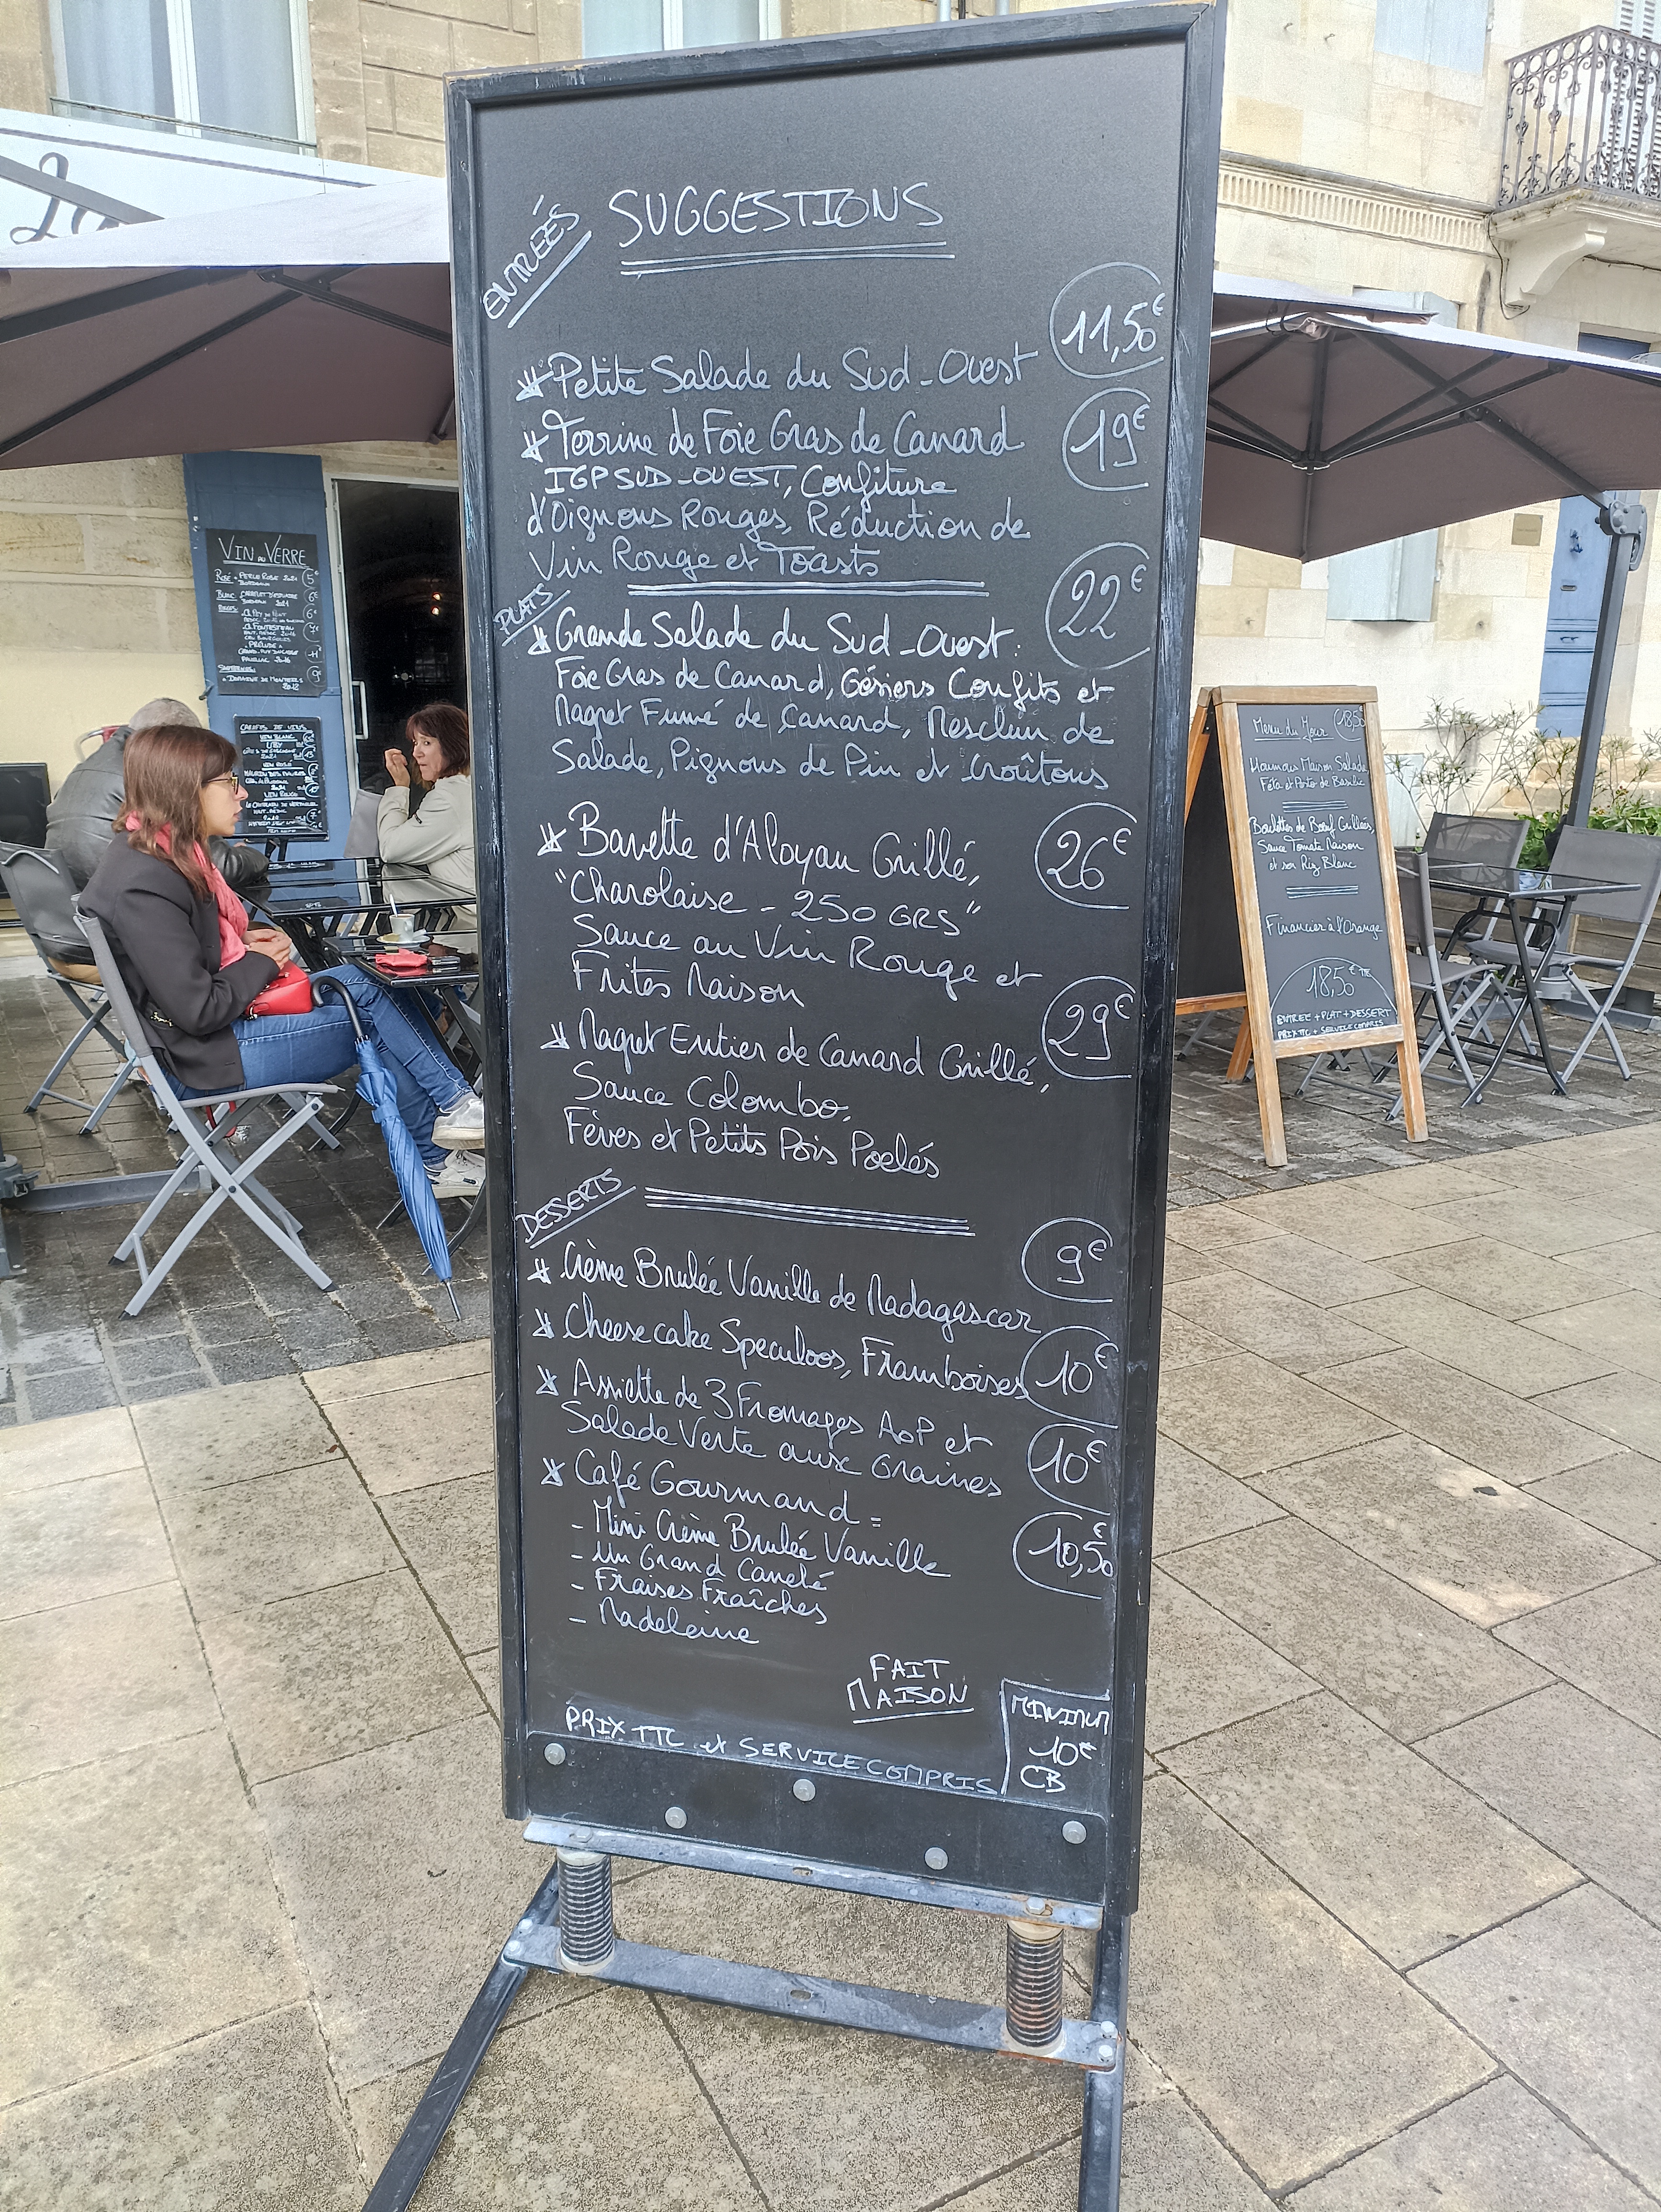 La
ENTRÉES
SUGGESTIONS
Petite Salade du Sud-Ouest 11,50€
Terrine de Foie Gras de Canard 19€
IGP SUD-OUEST, Confiture
d'Oignons Rouges, Réduction de
Vin Rouge et Toasts
PLATS
Grande Salade du Sud-Ouest: 22€
Foie Gras de Canard, Gésiers Confits et
Magret Fumé de Canard, Mesclun de
Salade, Pignons de Pin et Croûtons
Bavette d'Aloyau Grillé, 26€
"Charolaise - 250 GRS"
Sauce au Vin Rouge et
Frites Maison
Magret Entier de Canard Grillé, 29€
Sauce Colombo,
Fèves et Petits Pois Poelés
DESSERTS
Crème Brulée Vanille de Madagascar 9€
Cheesecake Speculoos, Framboises 10€
Assiette de 3 Fromages AOP et 10€
Salade Verte aux Graines
Café Gourmand = 10,50€
- Mini Crème Brulée Vanille
- Un Grand Canelé
- Fraises Fraîches
- Madeleine
FAIT
MAISON
PRIX TTC et SERVICE COMPRIS
MINIMUM
10€
CB
VIN AU VERRE
ROSÉ 5€
BORDEAUX
BLANC 6€
Menu du Jour 18,50
Houmous Maison Salade
Féta et Pesto de Basilic
Boulettes de Boeuf Grillées,
Sauce Tomate Maison
et son Riz Blanc
Financier à l'Orange
18,50€ TTC
ENTREE + PLAT + DESSERT
PRIX TTC + SERVICE COMPRIS
CARAFES DE VINS
VIN BLANC
UBY
VIN ROSÉ
VIN ROUGE